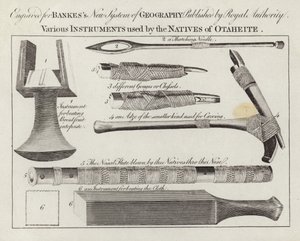 Engraved for BANKES's New System of GEOGRAPHY Published by Royal Authority.
Various INSTRUMENTS used by the NATIVES of OTAHEITE.
2 a Thatching Needle.
2
1
3
Instrument
for beating
Bread fruit
into paste.
3 different Gouges or Chissels.
4 an Adze of the smaller kind used for Carving.
4
5 The Nasal Flute blown by the Natives thro' the Nose.
5
6 an Instrument for beating the Cloth.
6
6